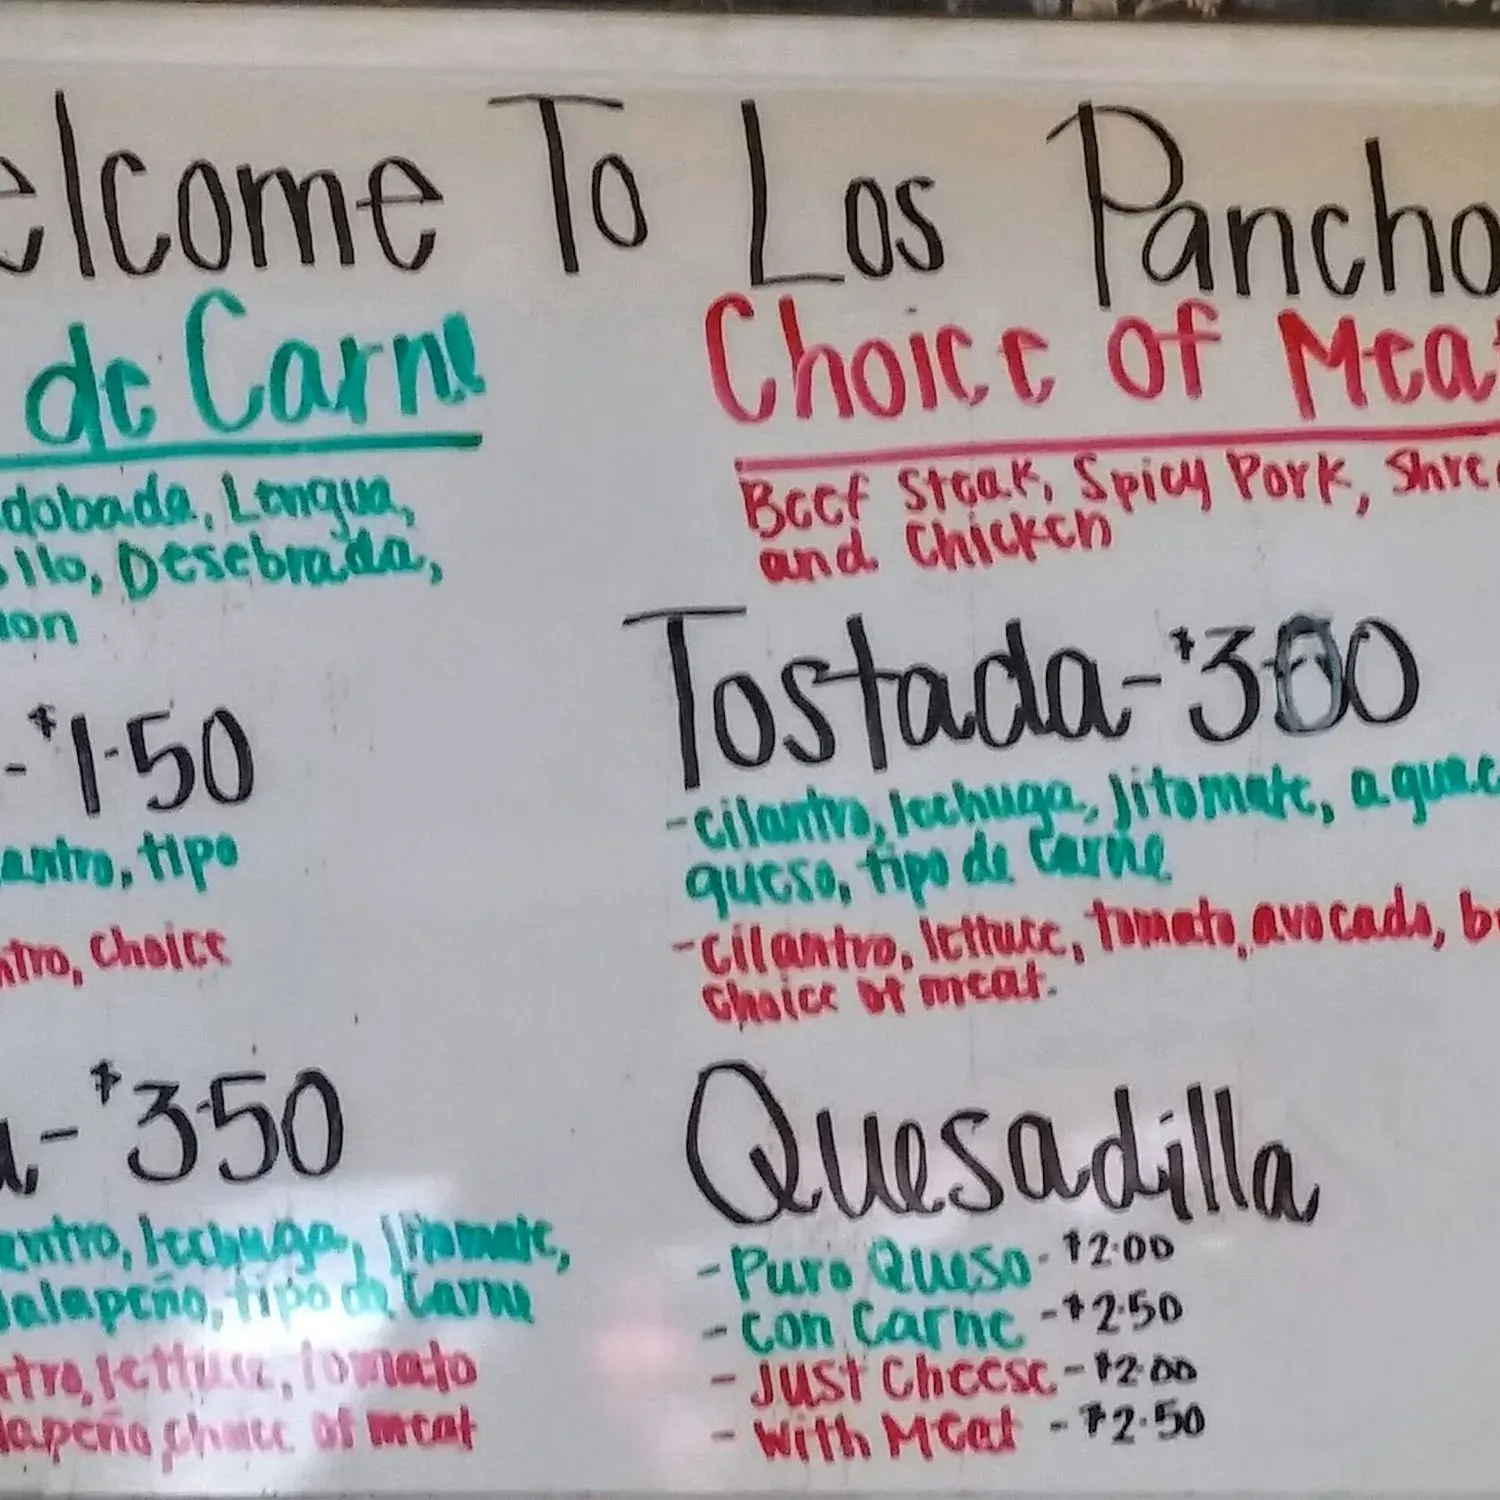 elcome To Los Pancho
de Carne
dobada, Lengua,
illo, Desebrada,
ion
- $1.50
antro, tipo
ntro, choice
a - $3.50
antro, lechuga, jitomate,
Jalapeño, tipo de Carne
ntro, lettuce, tomato
lapeño choice of meat
Choice of Meat
Beef Steak, Spicy Pork, Shre
and Chicken
Tostada - $3.00
- cilantro, lechuga, jitomate, aguac
queso, tipo de Carne
- cilantro, lettuce, tomato, avocado, b
choice of meat.
Quesadilla
- Puro Queso - $2.00
- Con Carne - $2.50
- Just Cheese - $2.00
- With Meat - $2.50